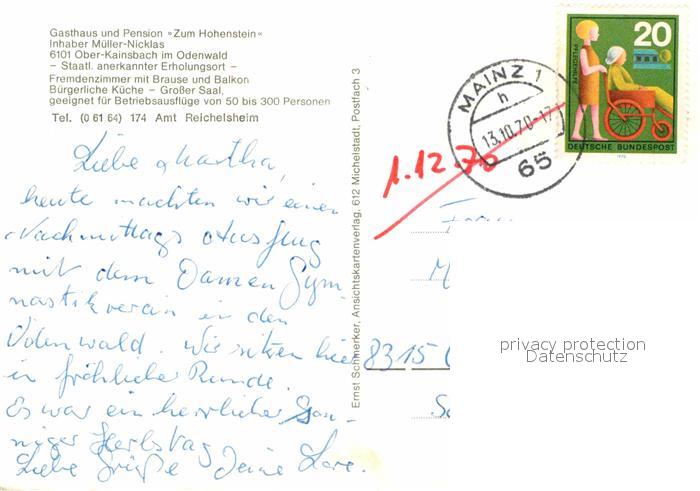 Gasthaus und Pension »Zum Hohenstein«
Inhaber Müller-Nicklas
6101 Ober-Kainsbach im Odenwald
– Staatl. anerkannter Erholungsort –
Fremdenzimmer mit Brause und Balkon
Bürgerliche Küche – Großer Saal,
geeignet für Betriebsausflüge von 50 bis 300 Personen
Tel. (0 61 64) 174 Amt Reichelsheim
Liebe Martha,
heute machten wir einen
Nachmittags Ausflug
mit dem Damen Gym-
nastikverein in den
Odenwald. Wir sitzen hier
in fröhlicher Runde.
Es war ein herrlicher Son-
niger Herbstag
Liebe Grüße Deine Lore.
Ernst Schmerker, Ansichtskartenverlag, 612 Michelstadt, Postfach 3
MAINZ 1
h
13.10.70-17
65
1.12.70
20
PFLEGEHILFE
DEUTSCHE BUNDESPOST
1970
M
8315
privacy protection
Datenschutz